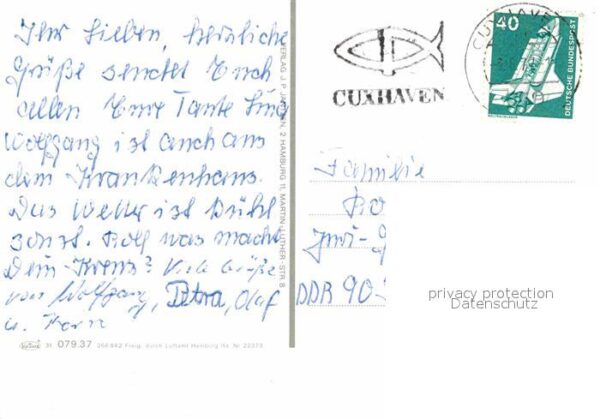 Ihr Lieben, herzliche
Grüße sendet Euch
allen Eure Tante
Wolfgang ist auch aus
dem Krankenhaus.
Das Wetter ist kühl
sonst. Rolf was macht
Dein Kreuz? Viele Grüße
von Wolfgang, Petra, Olaf
u.
31 079.37
Freig. durch Luftamt Hamburg
VERLAG J. P. 2 HAMBURG 11, MARTIN-LUTHER-STR. 8
CUXHAVEN
CUXHAVEN
40
DEUTSCHE BUNDESPOST
Familie
DDR 90
privacy protection
Datenschutz